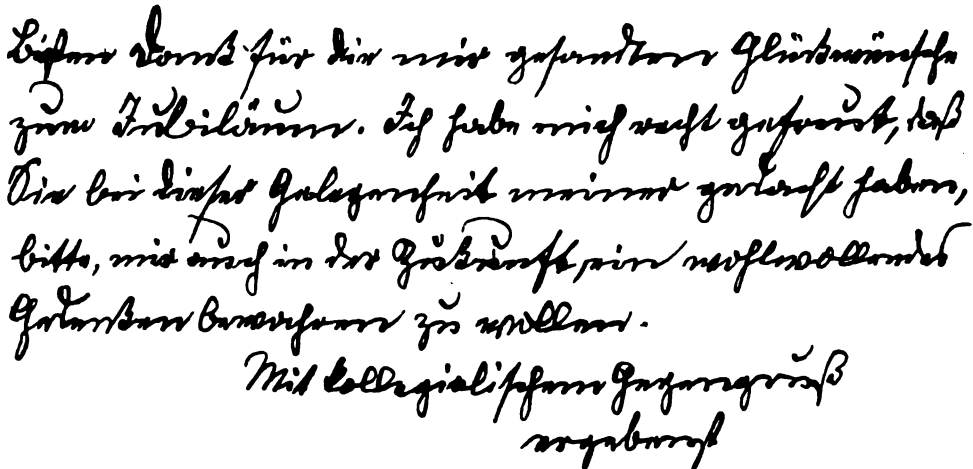 Besten Dank für die mir gesandten Glückwünsche
zum Jubiläum. Ich habe mich recht gefreut, daß
Sie bei dieser Gelegenheit meiner gedacht haben,
bitte, mir auch in der Zukunft ein wohlwollendes
Gedenken bewahren zu wollen.
Mit kollegialischem Gegengruß
ergebenst